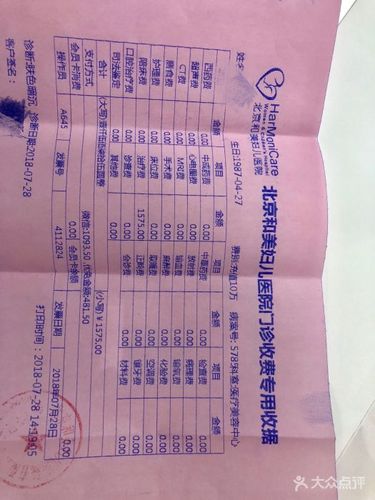 HarMoniCare
北京和美妇儿医院
北京和美妇儿医院门诊收费专用收据
生日:1987-04-27
类别:充值10万
科室:医疗美容中心
项目 金额 项目 金额 项目 金额 项目 金额
西药费 中成药费 中草药费 检查费 0.00
超声费 心电图费 放射费 病理费 0.00
CT费 MRI费 输血费 输氧费 0.00
膳食费 手术费 麻醉费 化验费 0.00
护理费 床位费 取暖费 空调费 0.00
陪床费 治疗费 1575.00 正畸费 镶牙费 0.00
口腔治疗费 诊查费 0.00 会诊费 0.00 材料费 0.00
司法鉴定 0.00 其他费 0.00
(大写)壹仟伍佰柒拾伍圆整 (小写)¥ 1575.00
支付方式 微信:1093.50 优惠金额:481.50
会员卡消费 0.00 会员卡余额 0.00
操作员 A645 发票号 4112824 发票日期 2018年07月28日
诊断:肤色暗沉 诊断日期:2018-07-28
打印时间: 2018-07-28
客户签名:
大众点评